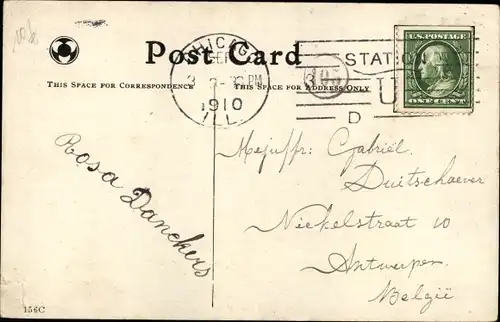 Post Card
THIS SPACE FOR CORRESPONDENCE
THIS SPACE FOR ADDRESS ONLY
CHICAGO
SEP
3
PM
1910
ILL.
STATION
U
D
U.S. POSTAGE
ONE CENT
Rosa Danckers
Mejuffr: Gabriël
Duitschaever
Nickelstraat 10
Antwerpen
België
156C